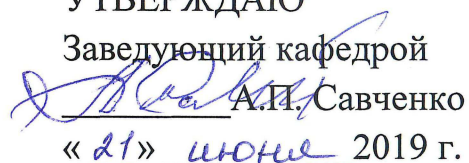 УТВЕРЖДАЮ
Заведующий кафедрой
А.П. Савченко
« 21» июня 2019 г.